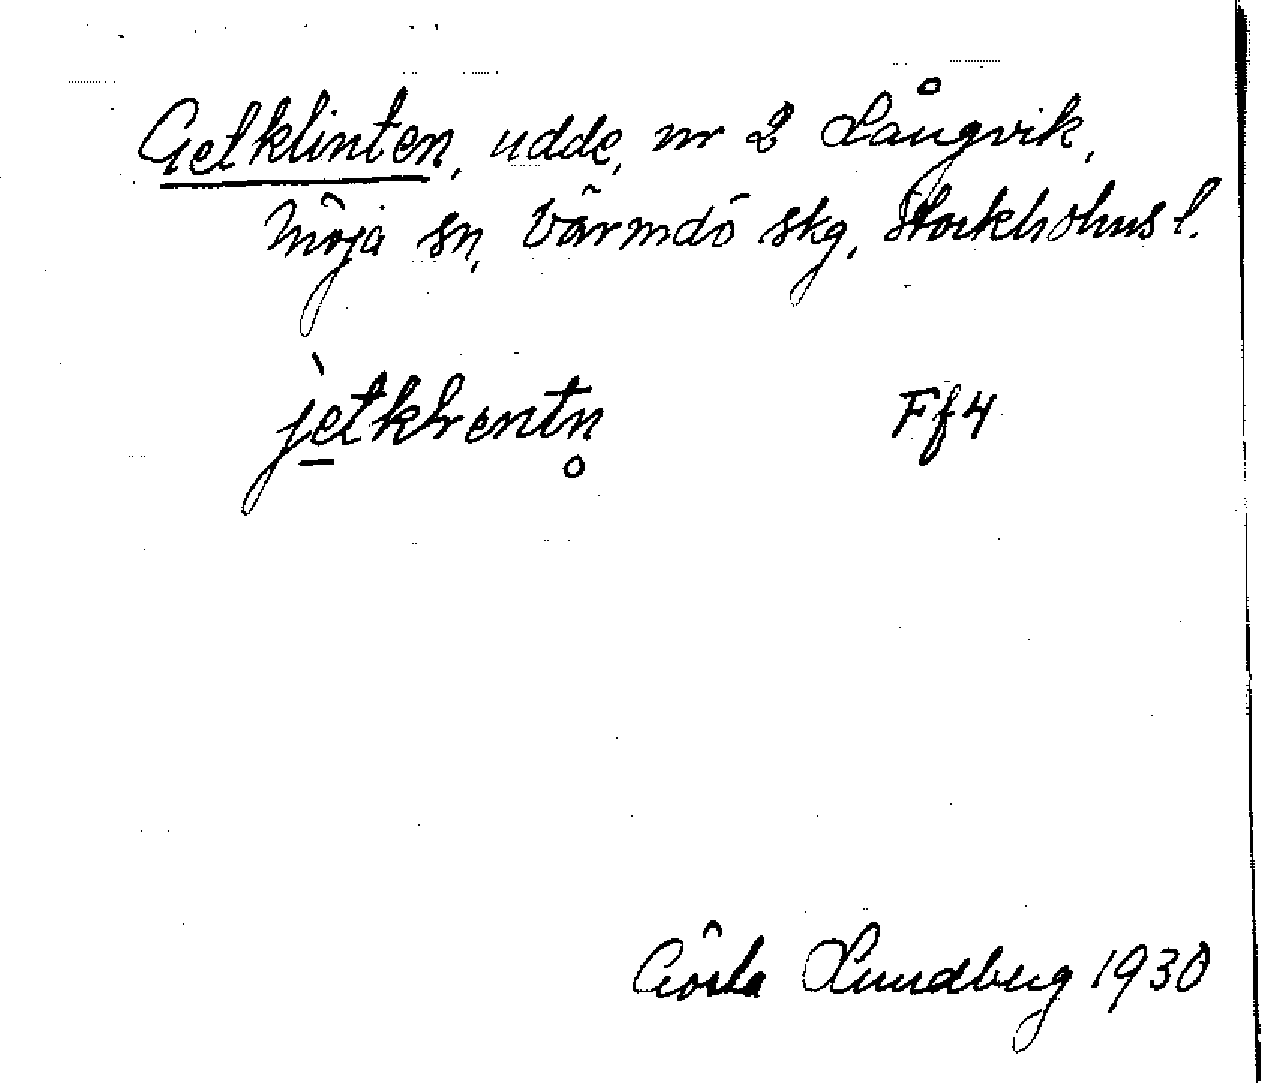 Getklinten, udde, nr 2 Långvik,
Möja sn, Värmdö skg, Stockholms l.
jètklentn̥ Ff4
Gösta Lundberg 1930